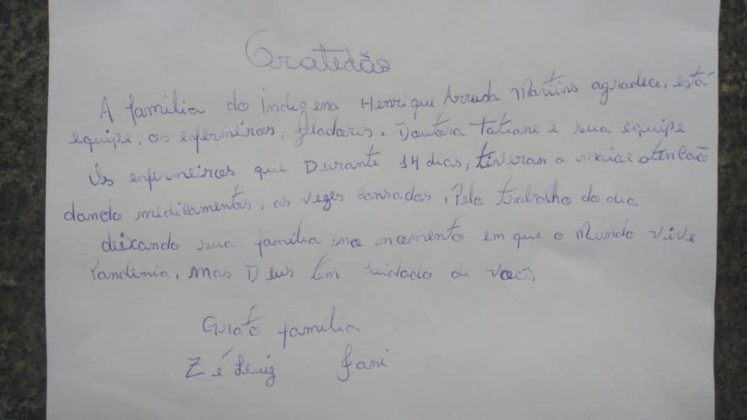 Gratedão
A família do Indígena Henrique Arruda Martins agradece, está
equipe, os enfermeiros, Doutora Tatiane e sua equipe
Os enfermeiros que Durante 14 dias, tiveran a maior atencão
dando medicamentos, as vezes cansados, Pelo trabalho do dia
deixando sua família no momento em que o Mundo vive
Pandemia, mas Deus tem cuidado de voceis
Grato família
Zé Luiz